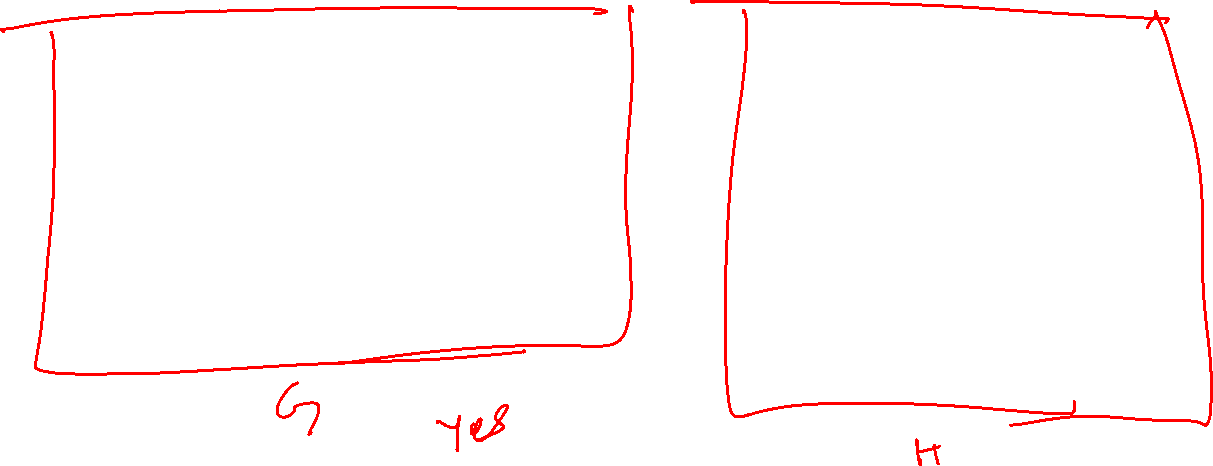 G yes
H